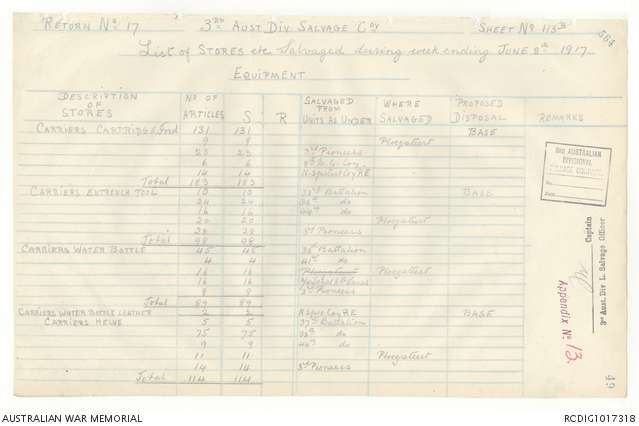 RETURN No 17 3RD AUST DIV. SALVAGE Coy SHEET No 113B 564
List of STORES etc Salvaged during week ending JUNE 8th 1917
EQUIPMENT
DESCRIPTION OF STORES No OF ARTICLES S R SALVAGED FROM UNITS AS UNDER WHERE SALVAGED PROPOSED DISPOSAL REMARKS
CARRIERS CARTRIDGE 131 131 BASE
9 9 Ploegsteert
23 23 3rd Pioneers
6 6
14 14
Total 183 183
CARRIERS ENTRENCH TOOL 10 10 33rd Battalion BASE
24 24 do
16 16 do
20 20 Ploegsteert
28 28 3rd Pioneers
Total 98 98
CARRIERS WATER BOTTLE 45 45 Battalion
4 4 41st do
16 16 Ploegsteert Ploegsteert
16 16
8 8 3rd Pioneers
Total 89 89
CARRIERS WATER BOTTLE LEATHER 2 2 BASE
CARRIERS HELVE 5 5 37th Battalion
75 75 do
9 9 do
11 11 Ploegsteert
14 14 3rd Pioneers
Total 114 114
3RD AUSTRALIAN
DIVISIONAL
SALVAGE COMPANY
Captain
3rd Aust. Div L. Salvage Officer
Appendix No 13.
49
AUSTRALIAN WAR MEMORIAL RCDIG1017318